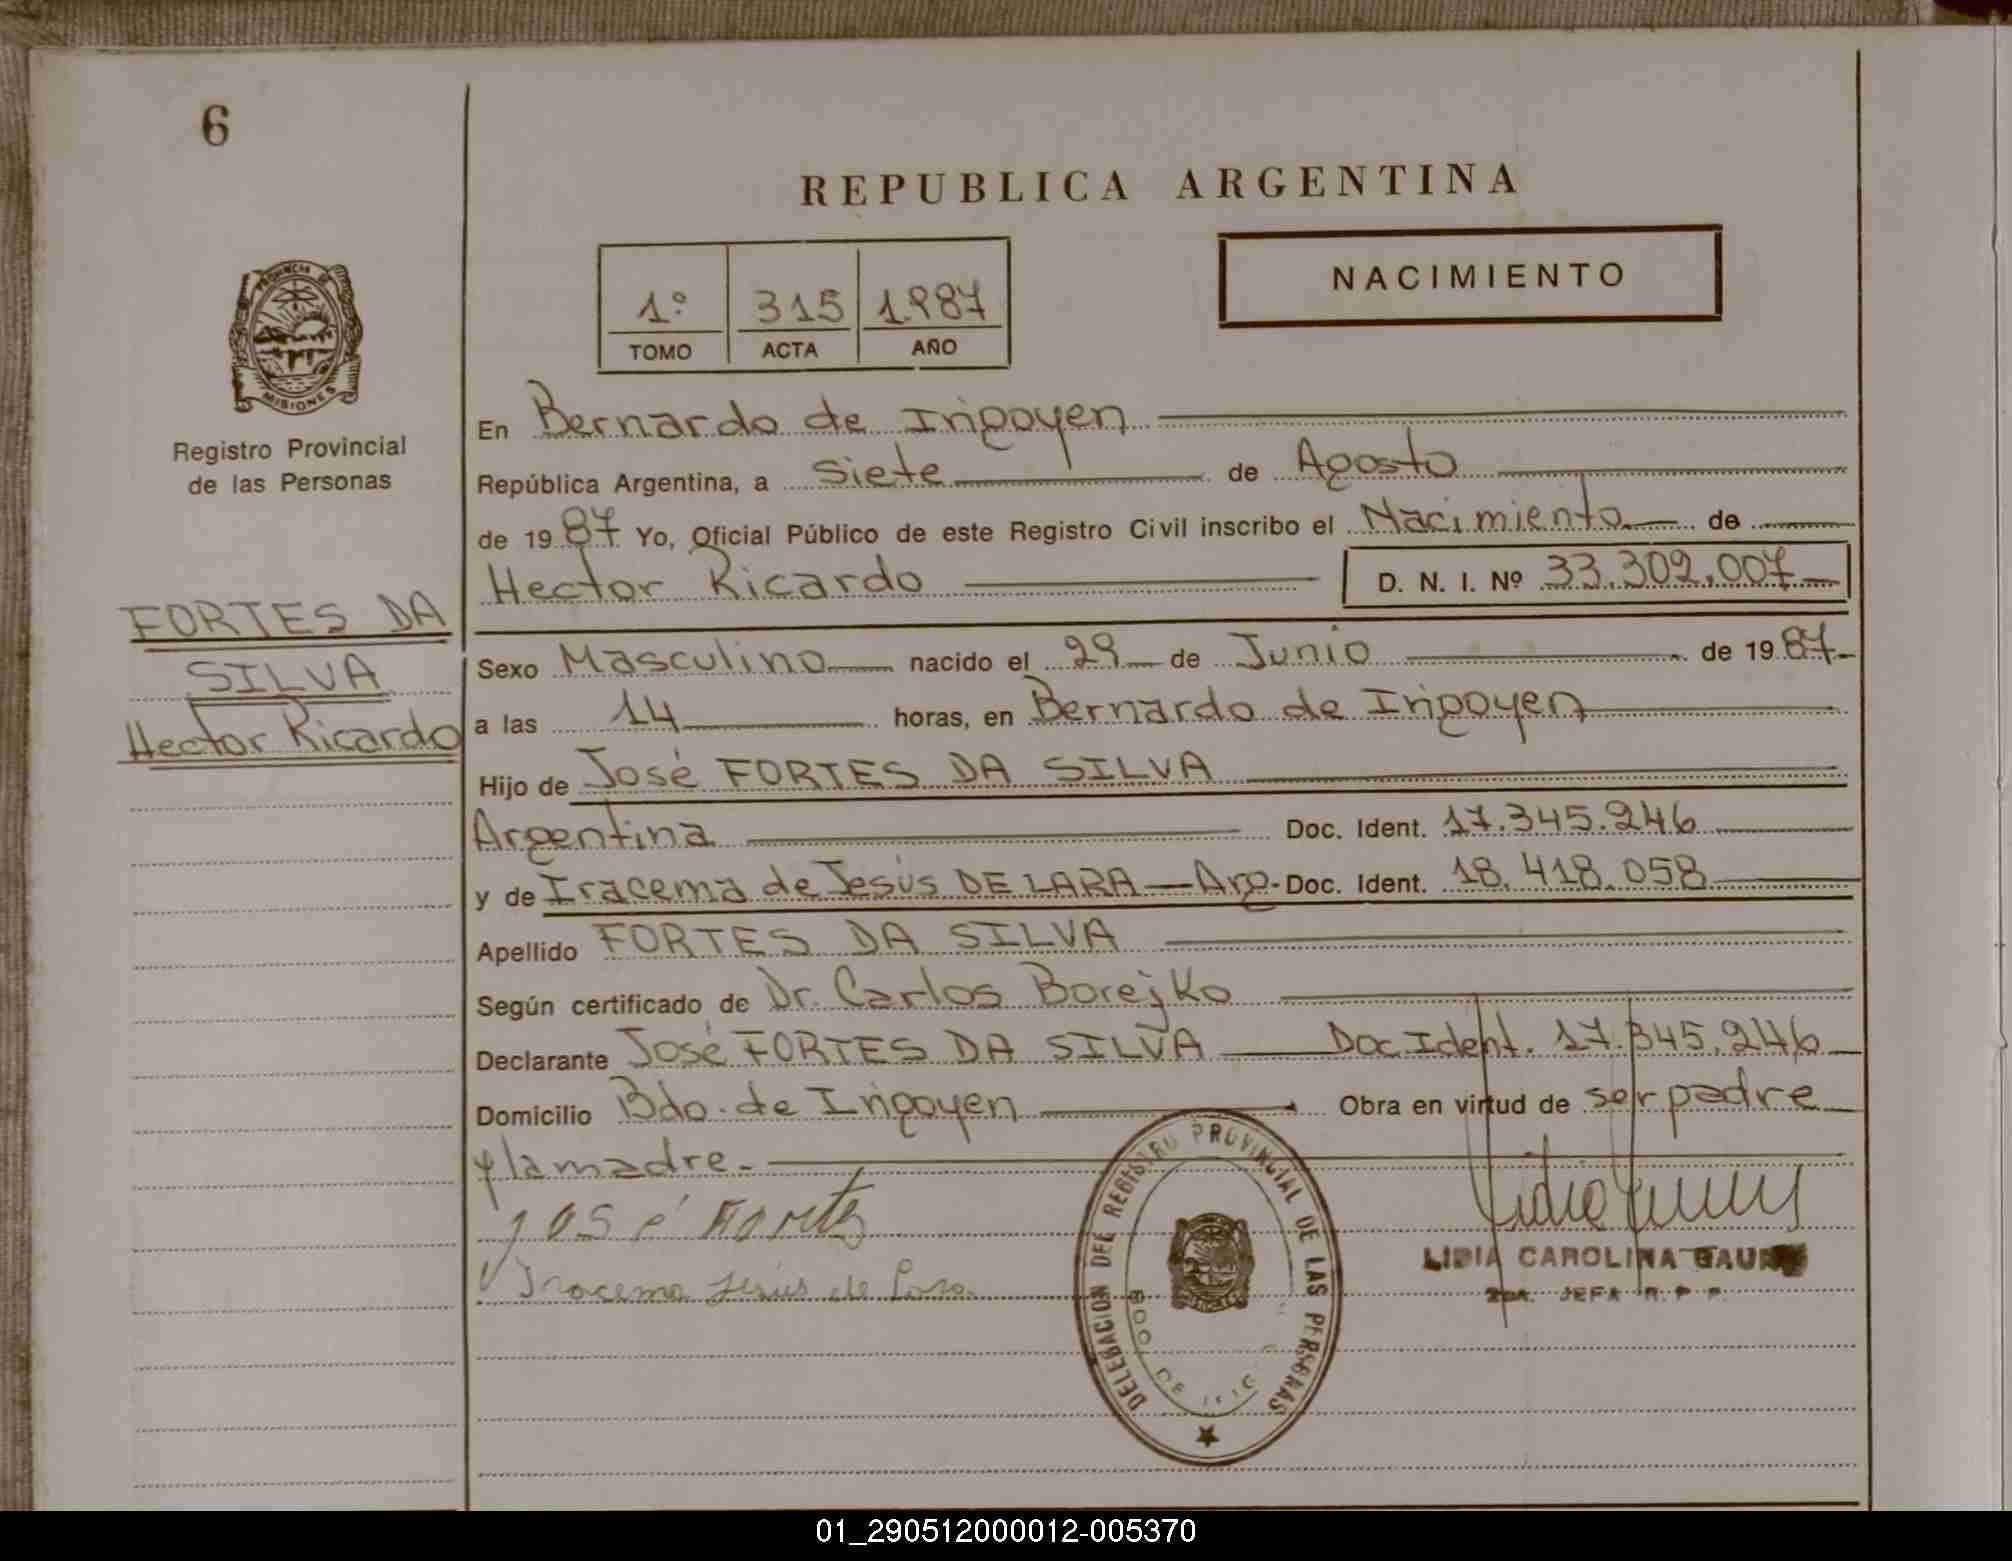 6
REPUBLICA ARGENTINA
NACIMIENTO
1º 315 1987
TOMO ACTA AÑO
PROVINCIA DE
MISIONES
Registro Provincial
de las Personas
FORTES DA
SILVA
Hector Ricardo
En Bernardo de Irigoyen
República Argentina, a siete de Agosto
de 1987 Yo, Oficial Público de este Registro Civil inscribo el Nacimiento de
Hector Ricardo D. N. I. Nº 33.302.007
Sexo Masculino nacido el 29 de Junio de 1987
a las 14 horas, en Bernardo de Irigoyen
Hijo de José FORTES DA SILVA
Argentina Doc. Ident. 17.345.246
y de Iracema de Jesús DE LARA — Arg. Doc. Ident. 18.418.058
Apellido FORTES DA SILVA
Según certificado de Dr. Carlos Borejko
Declarante José FORTES DA SILVA Doc. Ident. 17.345.246
Domicilio Bdo. de Irigoyen Obra en virtud de ser padre
y la madre.-
José Fortes
Iracema Jesus de Lara
DELEGACION DEL REGISTRO PROVINCIAL DE LAS PERSONAS
BDO. DE
LIDIA CAROLINA
2da. JEFA R. P. P.
01_290512000012-005370